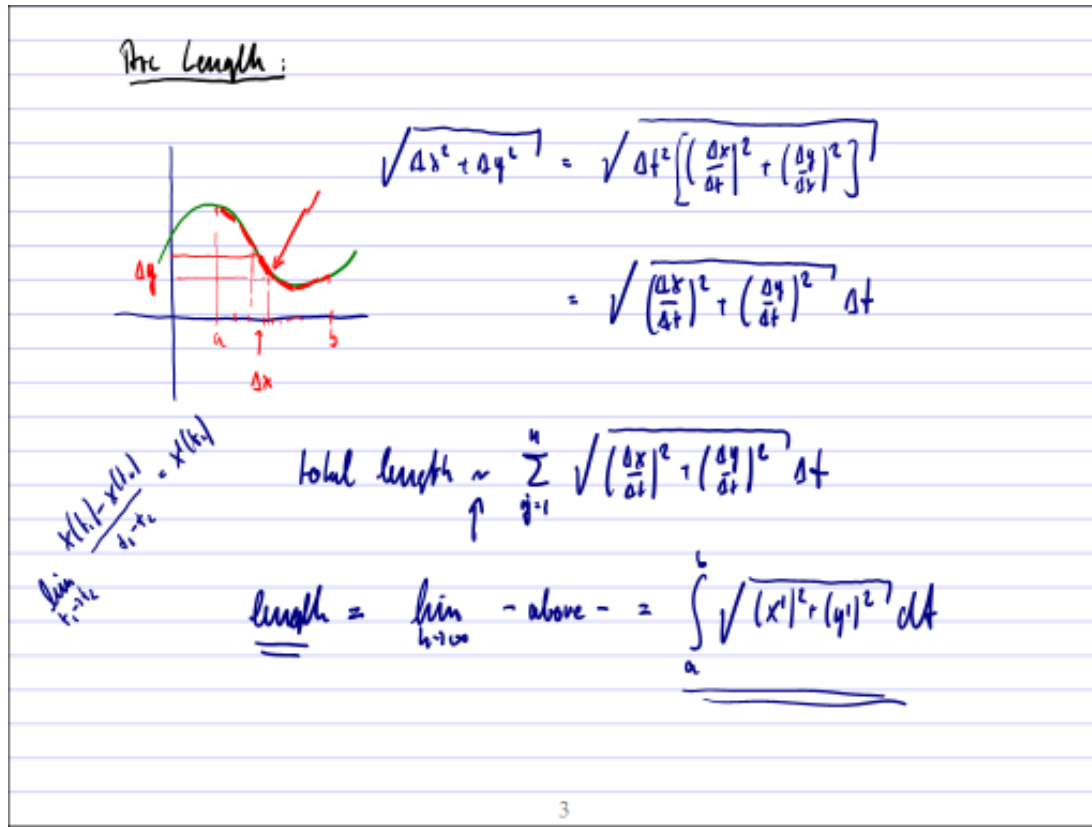 Arc Length:
√(Δx² + Δy²) = √(Δt² [(Δx/Δt)² + (Δy/Δt)²])
Δy
= √((Δx/Δt)² + (Δy/Δt)²) Δt
a ↑ b
Δx
lim t₁→t₂ (x(t₁) - x(t₂))/(t₁ - t₂) = x'(t₂)
total length ~ ∑ j=1 n √((Δx/Δt)² + (Δy/Δt)²) Δt
↑
length = lim n→∞ - above - = ∫ a b √((x')² + (y')²) dt
3